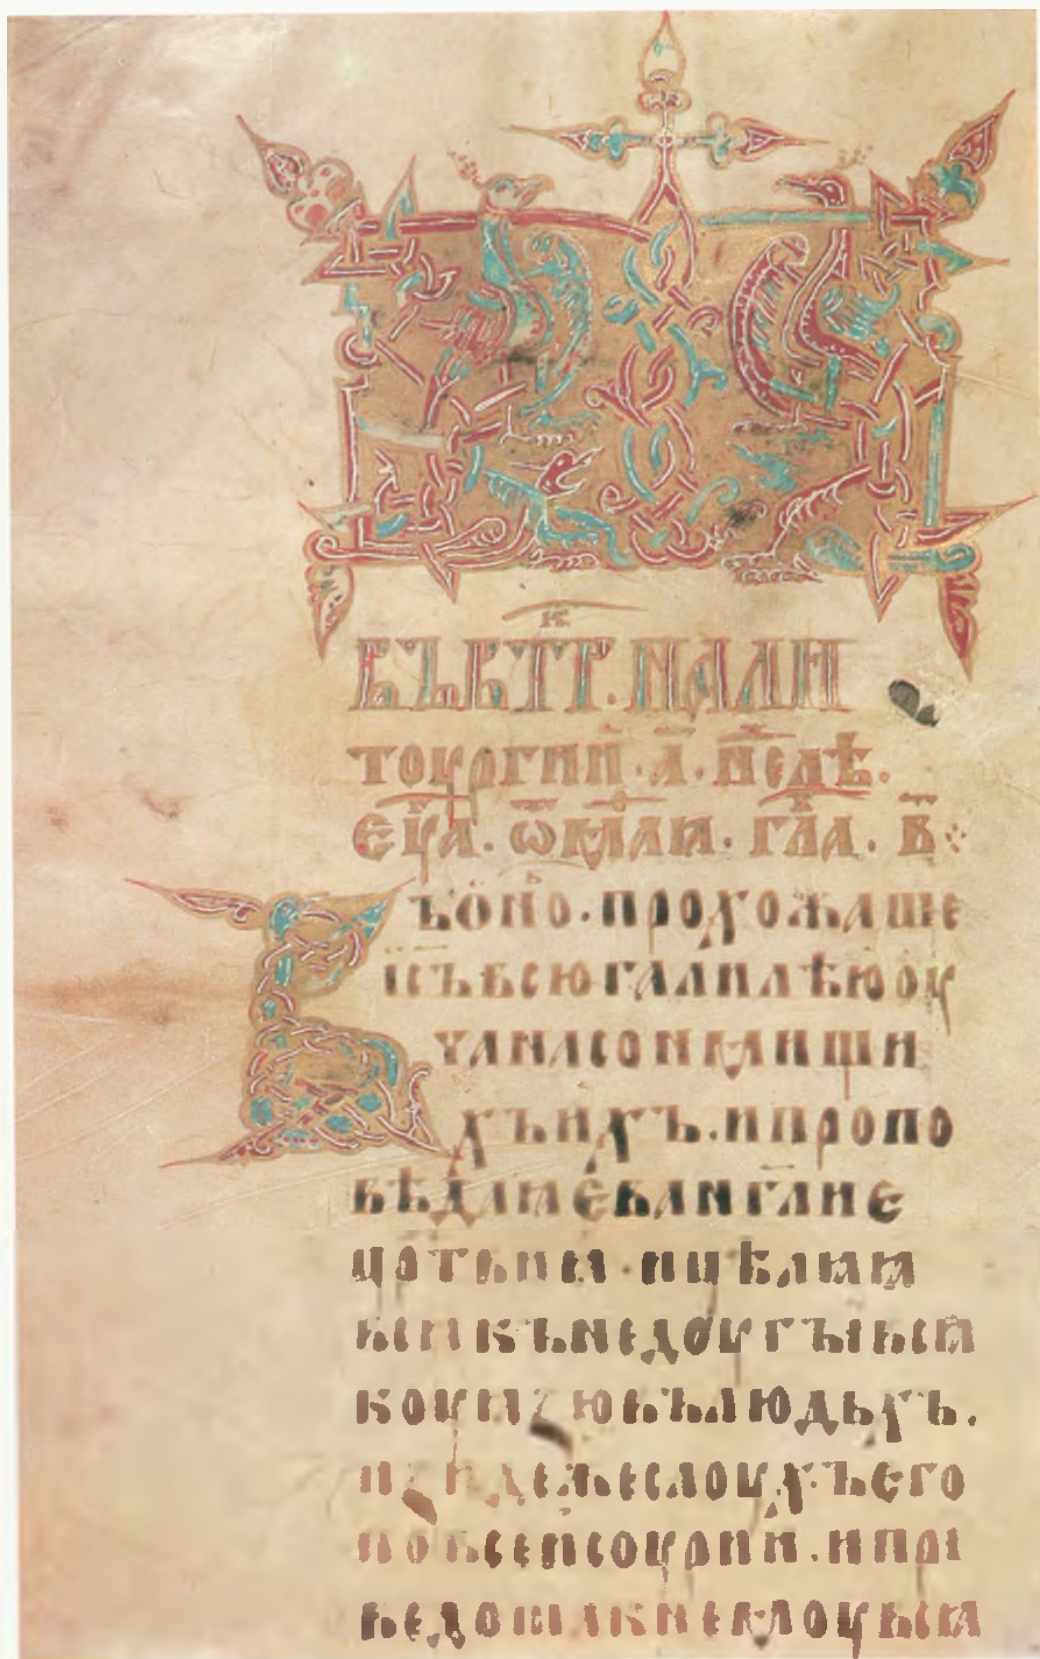 ВЪВТ꙯РК. НАЛИ
ТОУРГИИ. А. НЕДѢ.
ЕУ꙯А. ѾМАѲ꙯ЕꙖ. ГЛ҃А. В҃
ВЪОНО. ПРОХОЖАШЕ
ІС҃ЪВСЮГАЛИЛѢЮОУ
ЧАНАСОНЬМИЩИ
ХЪИХЪ. ИПРОПО
ВѢДАꙖЕВАНГ҃ЛИЕ
ЦРТВИꙖ. ИЦѢЛꙖꙖ
ВСИКЪНЕДОУГЪИВСꙖ
КОУꙖЗЮВЪЛЮДЬХЪ.
ИЗИДЕЖЕСЛОУХЪЕГО
ПОВСЕИСОУРИИ. ИПРИ
ВЕДОШАКНЕМОУВСꙖ